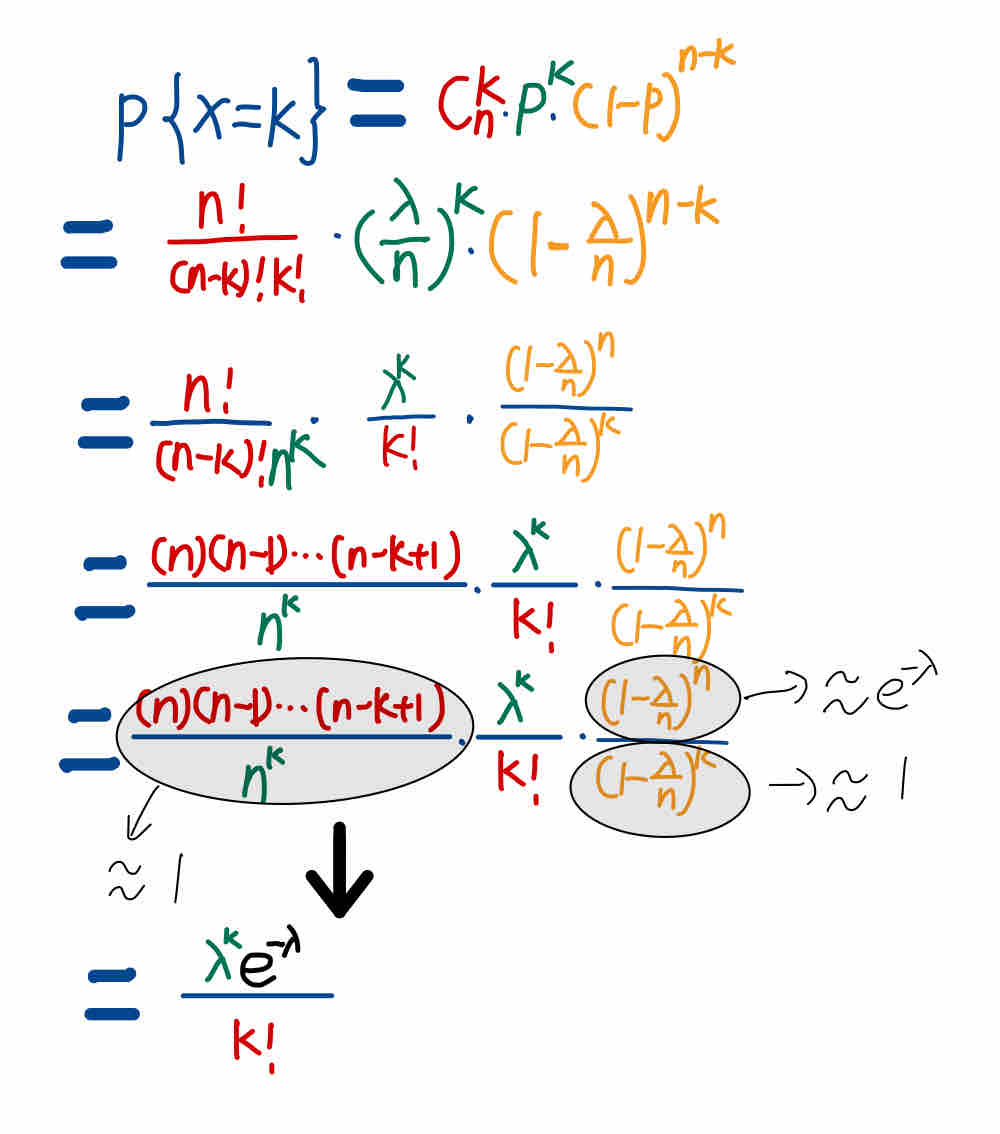 P{X=k} = C_n^k · p^k · (1-p)^{n-k}
= \frac{n!}{(n-k)!k!} · (\frac{λ}{n})^k · (1-\frac{λ}{n})^{n-k}
= \frac{n!}{(n-k)!n^k} · \frac{λ^k}{k!} · \frac{(1-\frac{λ}{n})^n}{(1-\frac{λ}{n})^k}
= \frac{(n)(n-1)···(n-k+1)}{n^k} · \frac{λ^k}{k!} · \frac{(1-\frac{λ}{n})^n}{(1-\frac{λ}{n})^k}
= \frac{(n)(n-1)···(n-k+1)}{n^k} · \frac{λ^k}{k!} · \frac{(1-\frac{λ}{n})^n}{(1-\frac{λ}{n})^k}
→ ≈ e^{-λ}
→ ≈ 1
≈ 1
= \frac{λ^k e^{-λ}}{k!}